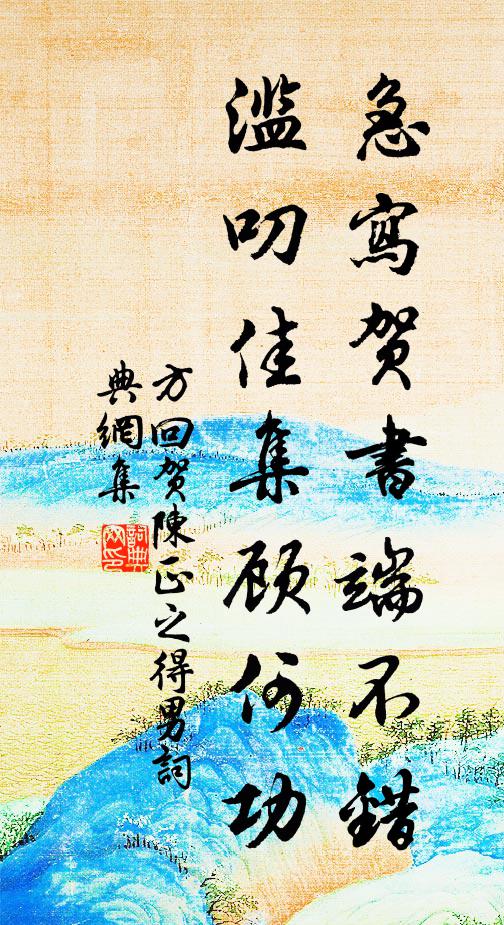 急寫賀書端不錯
濫叨佳集顧何功
方回賀陳正之得男詞
典網集
詞典
網印